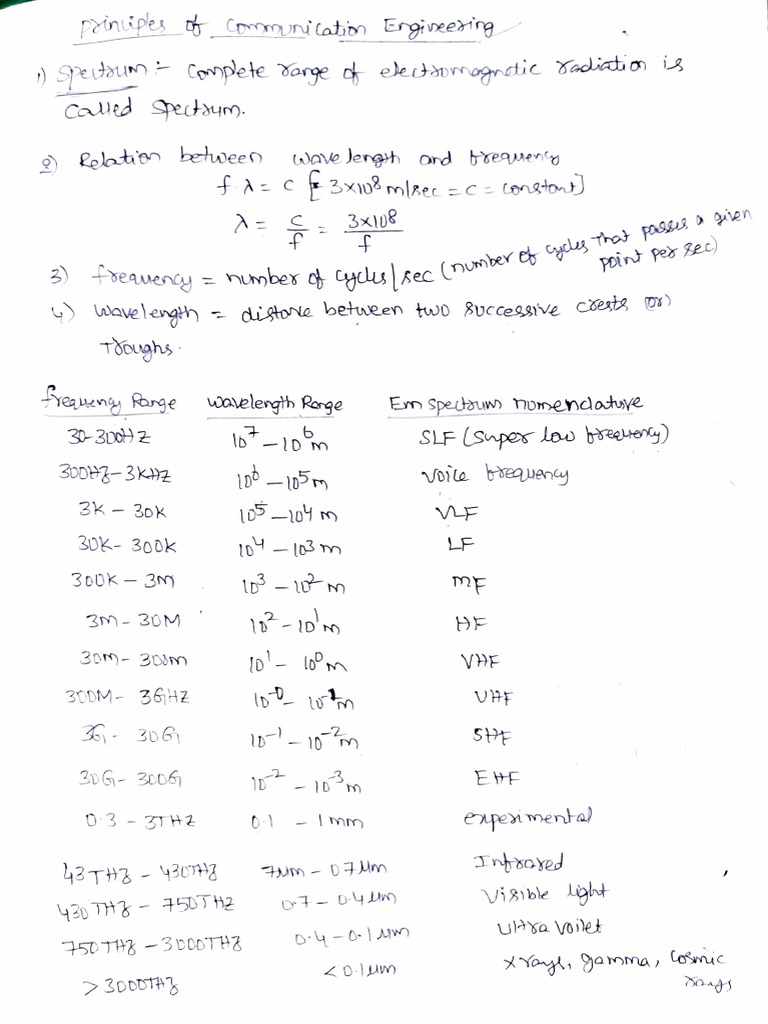 Principles of Communication Engineering
1) Spectrum :- Complete range of electromagnetic radiation is
Called Spectrum.
2) Relation between wavelength and frequency
f λ = c [ 3×10⁸ m/sec = c = constant]
λ = c/f = 3×10⁸/f
3) frequency = number of cycles/sec (number of cycles that passes a given
point per sec)
4) Wavelength = distance between two successive crests (or)
Troughs.
frequency Range Wavelength Range Em spectrum nomenclature
30-300HZ 10⁷ – 10⁶m SLF (Super low frequency)
300HZ – 3KHZ 10⁶ – 10⁵m Voice frequency
3K – 30K 10⁵ – 10⁴ m VLF
30K – 300K 10⁴ – 10³ m LF
300K – 3M 10³ – 10² m MF
3M – 30M 10² – 10¹ m HF
30M – 300M 10¹ – 10⁰ m VHF
300M – 3GHZ 10⁻⁰ – 10⁻¹m UHF
3G – 30G 10⁻¹ – 10⁻² m SHF
30G – 300G 10⁻² – 10⁻³ m EHF
0.3 – 3THZ 0.1 – 1mm experimental
43THZ – 430THZ 7μm – 0.7μm Infrared
430THZ – 750THZ 0.7 – 0.4μm Visible light
750THZ – 3000THZ 0.4 – 0.1μm Ultra Voilet
> 3000THZ < 0.1μm x rays, gamma, Cosmic
rays